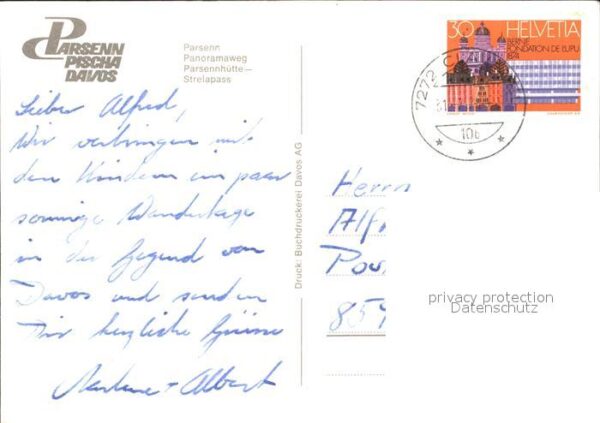 PARSENN
PISCHA
DAVOS
Parsenn
Panoramaweg
Parsennhütte–
Strelapass
Lieber Alfred,
Wir verbringen mit
den Kindern ein paar
sonnige Wandertage
in der Gegend von
Davos und senden
Dir herzliche Grüsse
+ Albert
Druck: Buchdruckerei Davos AG
30 HELVETIA
BERNE
FONDATION DE L'UPU
1874
7272 C
106
Herrn
Alf
Pos
854
privacy protection
Datenschutz